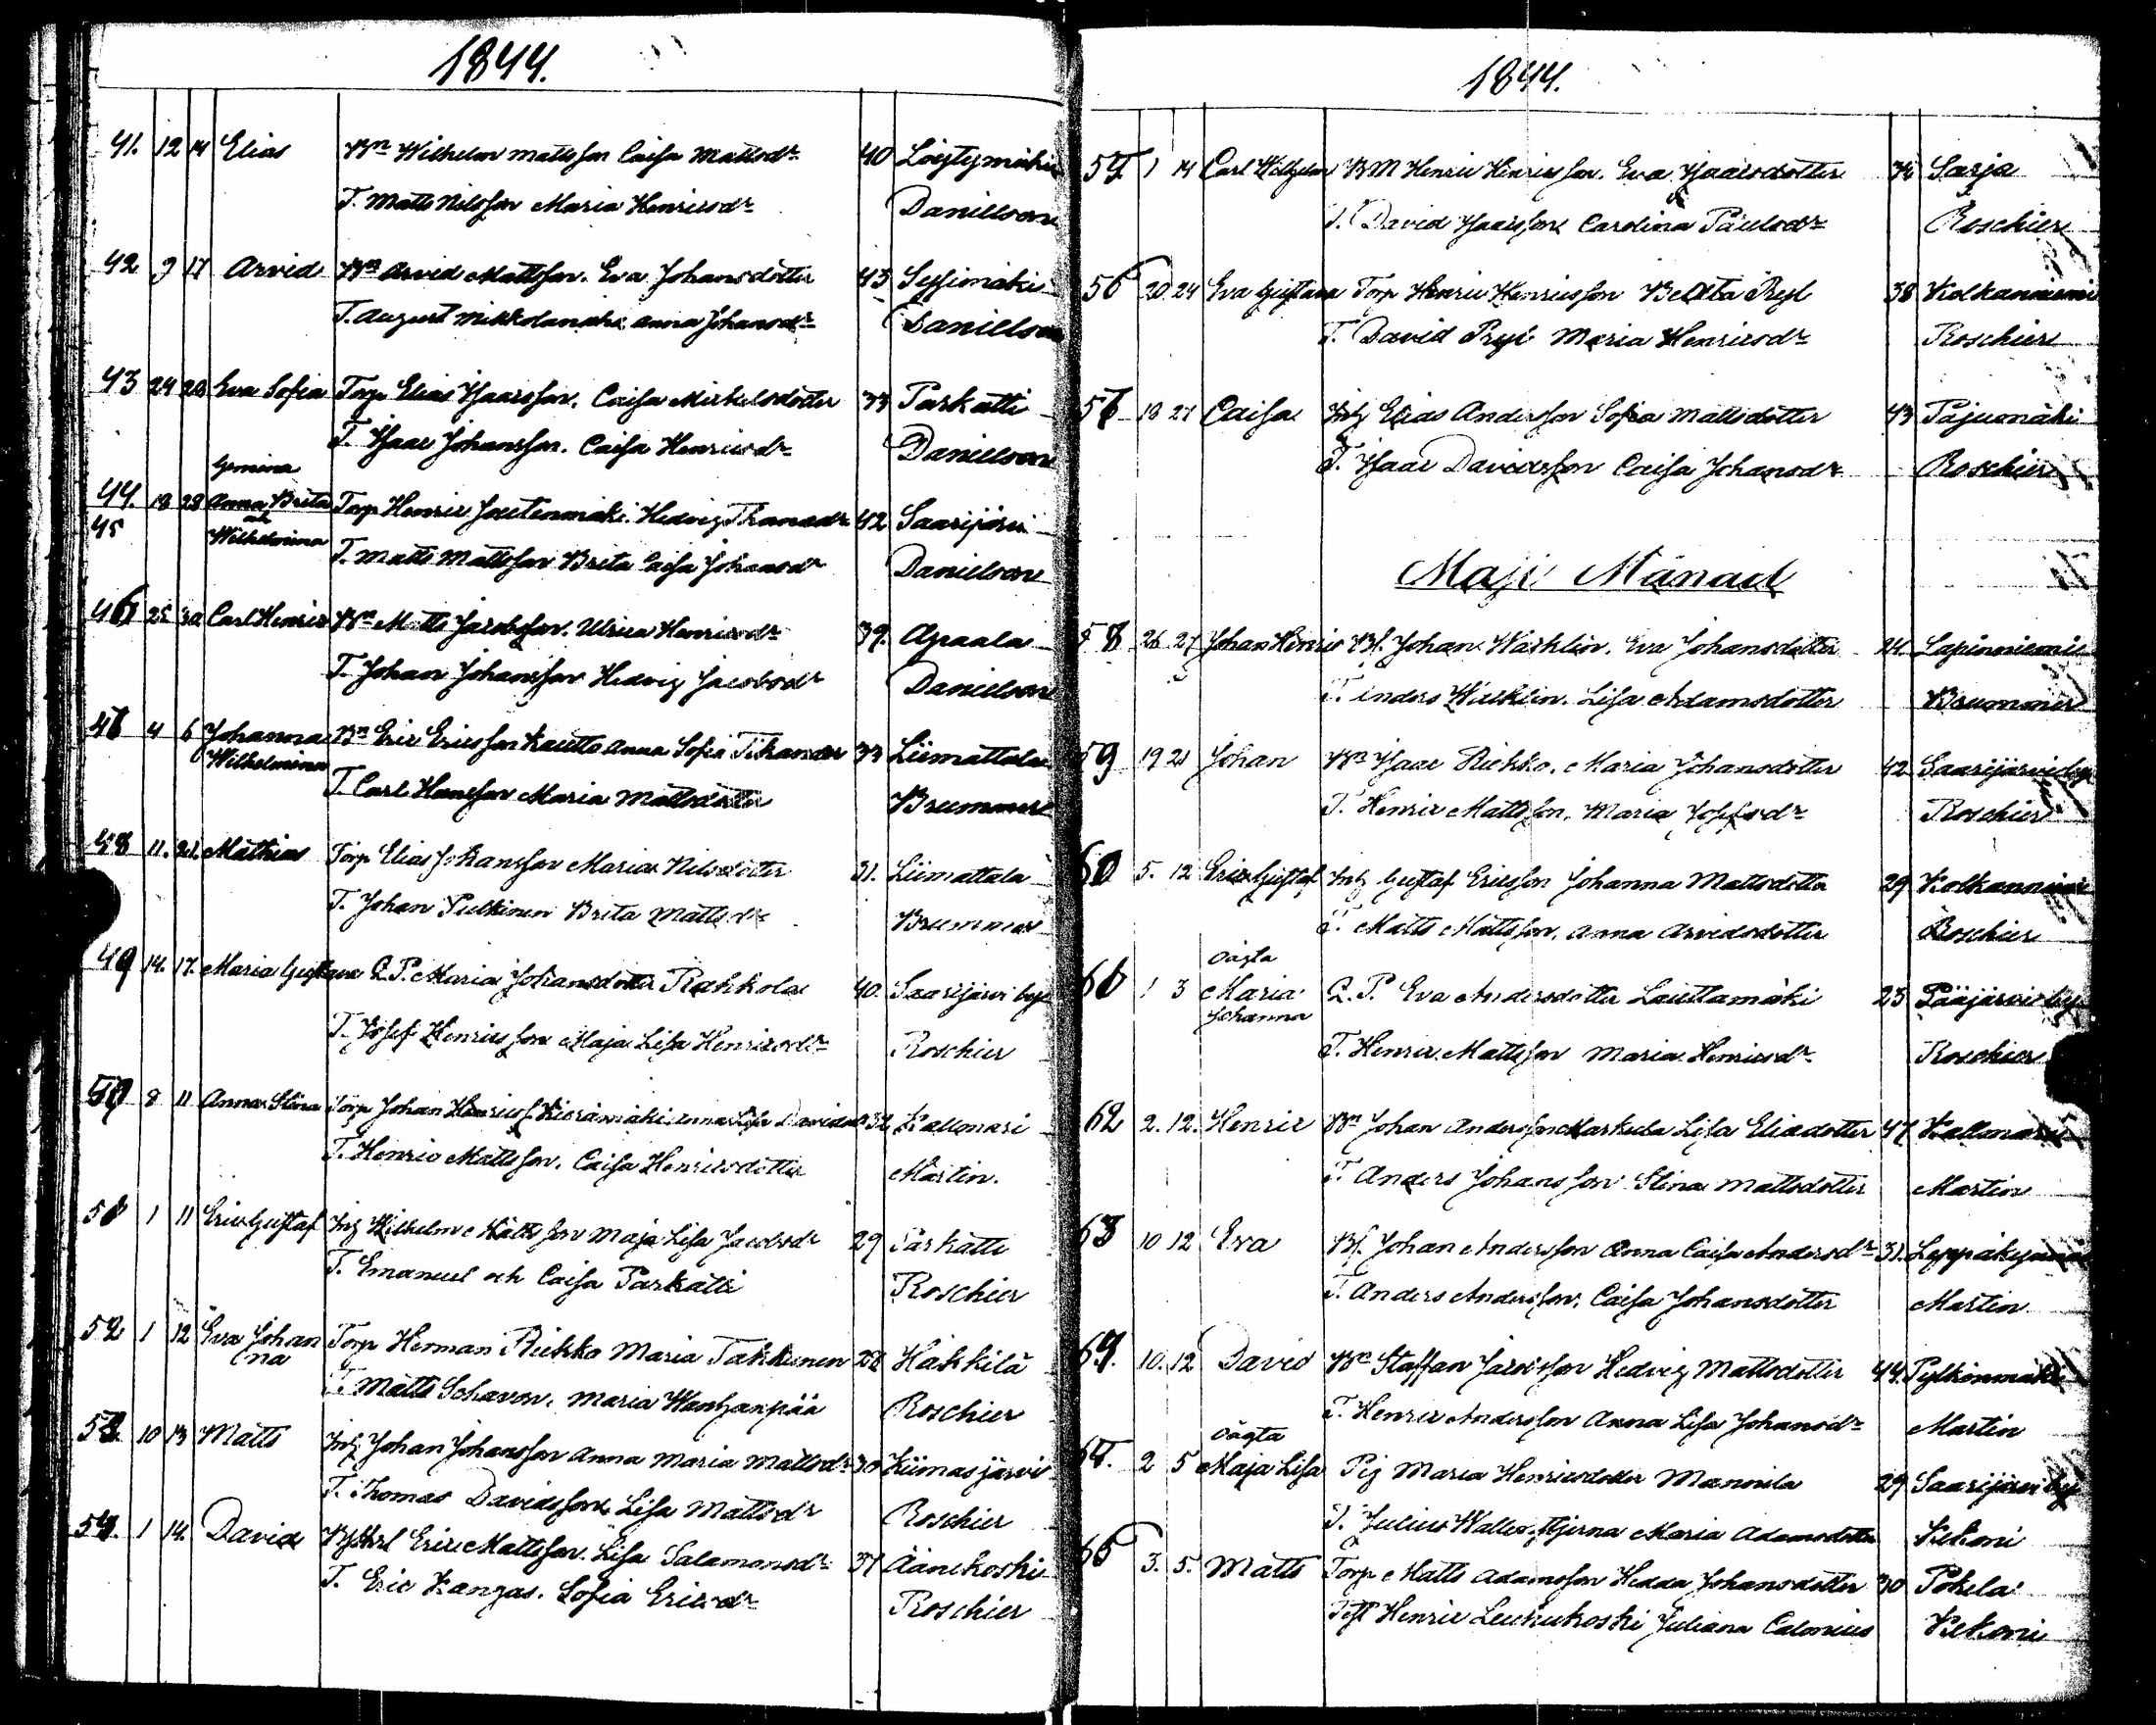 1844.
41. 12 14 Elias Bn Wilhelm Mattsson Caisa Mattsdr 40 Löytymäki
T. Matts Nilsson Maria Henricsdr Danielson
42 9 17 Arvid Bn Arvid Mattsson. Eva Johansdotter 43 Seppimäki
T. August Mikkolanaho Anna Johansdr Danielson
43 24 28 Eva Sofia Torp Elias Isaacsson. Caisa Michelsdotter 33 Parkatti
T. Isaac Johansson. Caisa Henricsdr Danielson
Gemina
44. 18 28 Anna Brita Torp Henric Joutenmäki. Hedvig Thomasdr 42 Saarijärvi
45 och Wilhelmina T. Matts Mattsson Brita Caisa Johansdr Danielson
46 25 30 Carl Henric Bn Matts Jacobsson. Ulrica Henricsdr 39. Apaala
T. Johan Johansson Hedvig Jacobsdr Danielson
47 4 6 Johanna Bn Eric Ericsson Kautto Anna Sofia Tikander 33 Liimattala
Wilhelmina T. Carl Hansson Maria Mattsdotter Brummer
48 11. 21. Mathias Torp Elias Johansson Maria Nilsdotter 31. Liimattala
T. Johan Pulkinen Brita Mattsdr Brummer
49 14. 17. Maria Gustava Q.P. Maria Johansdotter Rahkola 40. Saarijärvi by
T. Josef Henricsson Maja Lisa Henricsdr Roschier
50 8 11 Anna Stina Torp Johan Henricss. Kierämäki Anna Lisa Davidsdr 32 Kallmari
T. Henric Mattsson. Caisa Henricsdotter Martin.
51 1 11 Eric Gustaf Inh Wilhelm Mattsson Maja Lisa Jacobsdr 29 Parkatti
T. Emanuel och Caisa Parkatti Roschier
52 1 12 Eva Johan Torp Herman Riekko Maria Takkunen 28 Häkkilä
na T. Matts Schavon. Maria Wanhanpää Roschier
53 10 13 Matts Inh Johan Johansson Anna Maria Mattsdr 30 Kiimasjärvi
T. Thomas Davidsson Lisa Mattsdr Roschier
54. 1 14. David Eric Mattsson. Lisa Salamonsdr 37 Äänekoski
T. Eric Kangas. Sofia Ericsdr Roschier
1844.
55 1 14 Carl Wilhelm BM Henric Henricsson. Eva Isaacsdotter 34 Sarja
T. David Isaacsson Carolina Paulsdr Roschier
56 20 24 Eva Gustava Torp Henric Henricsson Beata Ryl 38 Kolkanniemi
T. David Ryl Maria Henricsdr Roschier
57 18 27 Caisa Inh Elias Andersson Sofia Mattsdotter 43 Pajumäki
T. Isaac Davidsson Caisa Johansdr Roschier
Maji Månad
58 26 27 Johan Henric Bf. Johan Wacklin. Eva Johansdotter 24 Lapinniemi
T. Anders Wacklin. Lisa Adamsdotter Brummer
59 19 21 Johan Bn Isaac Riekko. Maria Johansdotter 42 Saarijärvi by
T. Henric Mattsson. Maria Josefsdr Roschier
60 5. 12 Eric Gustaf Inh Gustaf Ericsson Johanna Mattsdotter 29 Kolkanniemi
T. Matts Mattsson. Anna Arvidsdotter Roschier
oägta
61 1 3 Maria Q.P. Eva Andersdotter Lauttamäki 23 Pääjärvi by
Johanna
T. Henric Mattsson Maria Henricsdr Roschier
62 2. 12. Henric Bn Johan Andersson Markula Lisa Eliædotter 47 Kallmari
T. Anders Johansson Stina Mattsdotter Martin
63 10 12 Eva Bf. Johan Andersson Anna Caisa Andersdr 31. Leppäkynnäs
T. Anders Andersson. Caisa Johansdotter Martin
64. 10. 12 David Bn Staffan Jacobsson Hedvig Mattsdotter 44. Pylkönmäki
T. Henric Andersson Anna Lisa Johansdr Martin
oägta
65. 2 5 Maja Lisa Pig Maria Henricsdotter Mannila 29 Saarijärvi by
T. Julius Wallensstjerna Maria Adamsdotter Kekoni
66 3. 5. Matts Torp Matts Adamsson Hedda Johansdotter 30 Pohela
Test Henric Leuhukoski Juliana Calonius Kekoni